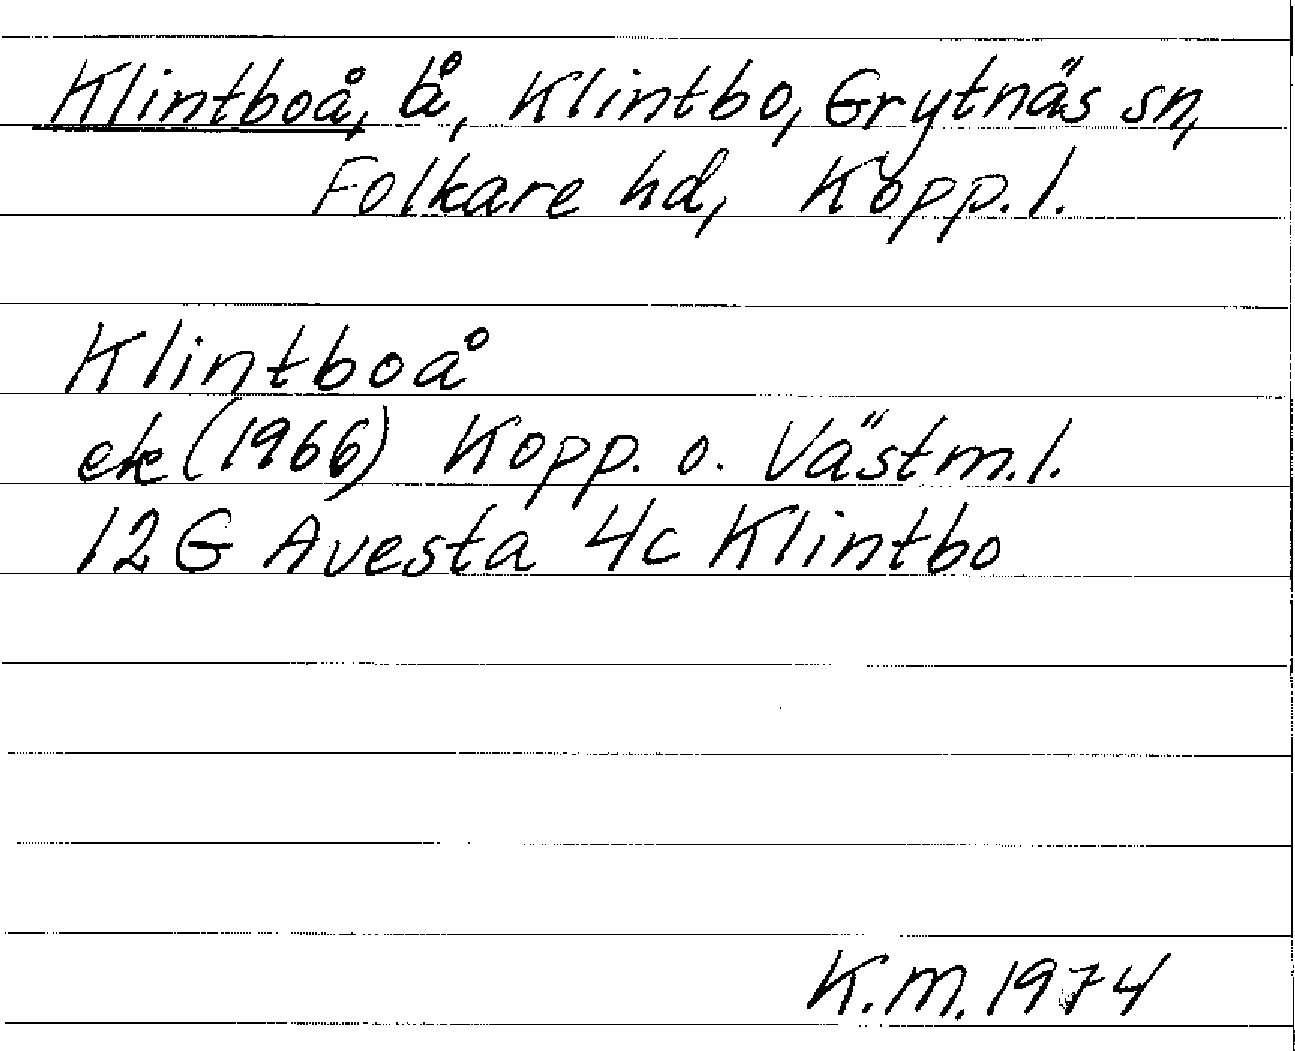 Klintboå, å, Klintbo, Grytnäs sn,
Folkare hd, Kopp. l.
Klintboå
ek (1966) Kopp. o. Västm. l.
12 G Avesta 4c Klintbo
K.M. 1974